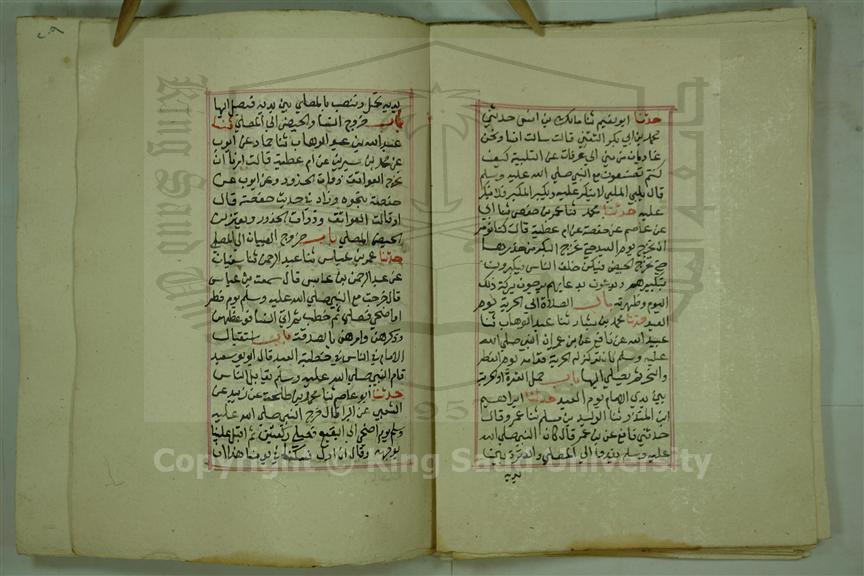 حدثنا ابو نعيم ثنا مالك بن انس حدثني
محمد بن ابي بكر الثقفي قالت سالت انسا ونحن
غاديان من منى الى عرفات عن التلبية كيف
كنتم تصنعون مع النبي صلى الله عليه وسلم
قال يلبي الملبي لا ينكر عليه ويكبر المكبر فلا ينكر
عليه حدثنا محمد ثنا عمر بن حفص ثنا ابي
عن عاصم عن حفصة عن ام عطية قالت كنا نؤمر
ان نخرج يوم العيد حتى نخرج البكر من خدرها
حتى نخرج الحيض فيكن خلف الناس فيكبرون
بتكبيرهم ويدعون بدعايهم يرجون بركة ذلك
اليوم وطهرته باب الصلاة الى الحربة يوم
العيد حدثنا محمد بن بشار ثنا عبد الوهاب ثنا
عبيد الله عن نافع عن بن عمر ان النبي صلى الله
عليه وسلم كان تركز له الحربة قدامه يوم الفطر
والنحر ثم يصلي اليها باب حمل العنزة او الحربة
بين يدي الامام يوم العيد حدثنا ابراهيم
ابن المنذر ثنا الوليد بن مسلم ثنا عمرو قال
حدثني نافع عن بن عمر قال كان النبي صلى الله
عليه وسلم يغدو الى المصلى والعنزة بين
يديه
٢٠٩
يديه تحمل وتنصب بالمصلى بين يديه فيصلي اليها
باب خروج النسا والحيض الى المصلى ثنا
عبد الله بن عبد الوهاب ثنا حماد عن ايوب
عن محمد بن سيرين عن ام عطية قالت امرنا ان
نخرج العواتق ذوات الخدور وعن ايوب عن
حفصة بنحوه وزاد في حديث حفصة قال
او قالت العواتق وذوات الخدور ويعتزلن
الحيض المصلى باب خروج الصبيان الى المصلى
حدثنا عمرو بن عباس ثنا عبد الرحمن ثنا سفيان
عن عبد الرحمن بن عابس قال سمعت بن عباس
قال خرجت مع النبي صلى الله عليه وسلم يوم فطر
او اضحى فصلى ثم خطب ثم اتى النسا فوعظهن
وذكرهن وامرهن بالصدقة باب استقبال
الامام الناس في خطبة العيد قال ابو سعيد
قام النبي صلى الله عليه وسلم مقابل الناس
حدثنا ابو نعيم ثنا محمد بن طلحة عن زبيد عن
الشعبي عن البرا قال خرج النبي صلى الله عليه
وسلم يوم اضحى الى البقيع فصلى ركعتين ثم اقبل علينا
بوجهه وقال ان اول نسكنا في يومنا هذا ان
King Saud University
1957
Copyright © King Saud University